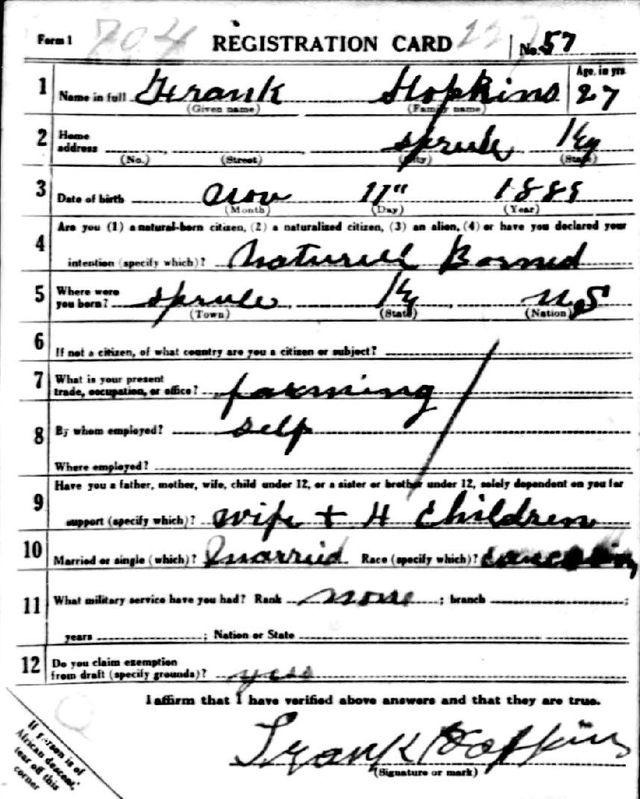 Form 1 704 REGISTRATION CARD No. 57
1 Name in full Frank Hopkins Age, in yrs. 27
(Given name) (Family name)
2 Home address Sprule Ky
(No.) (Street) (City) (State)
3 Date of birth Nov 17" 1889
(Month) (Day) (Year)
4 Are you (1) a natural-born citizen, (2) a naturalized citizen, (3) an alien, (4) or have you declared your
intention (specify which)? Naturell Borned
5 Where were you born? Sprule Ky U S
(Town) (State) (Nation)
6 If not a citizen, of what country are you a citizen or subject?
7 What is your present trade, occupation, or office? farming
8 By whom employed? Self
Where employed?
9 Have you a father, mother, wife, child under 12, or a sister or brother under 12, solely dependent on you for
support (specify which)? Wife + 4 Children
10 Married or single (which)? Married Race (specify which)?
11 What military service have you had? Rank none ; branch ;
years ; Nation or State
12 Do you claim exemption from draft (specify grounds)? yes
I affirm that I have verified above answers and that they are true.
Frank Hopkins
(Signature or mark)
If person is of
African descent,
tear off this
corner